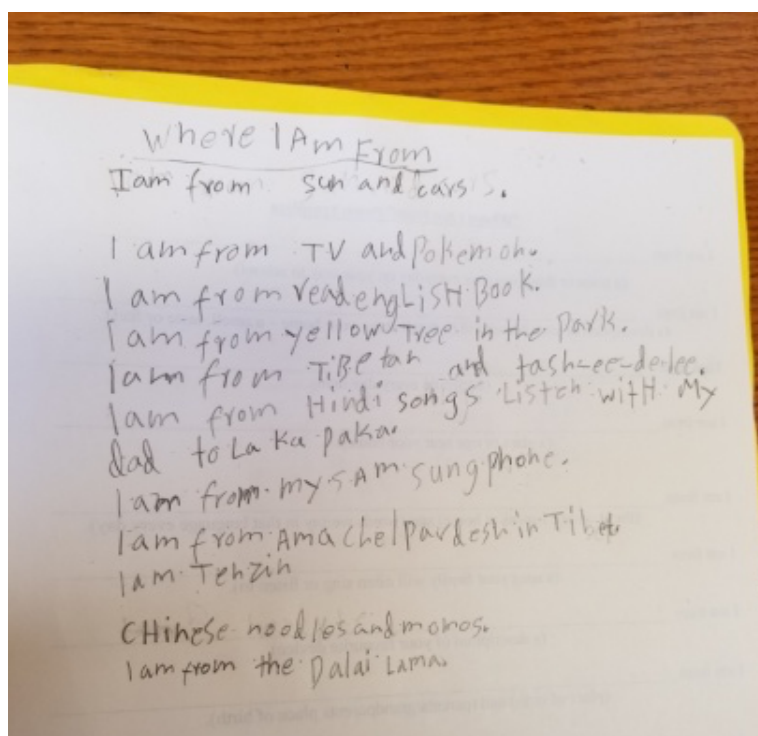 Where I Am From
I am from sun and cars.
I am from TV and Pokemon.
I am from read engLiSH Book.
I am from yellow Tree in the park.
I am from TiBetan and tash-ee-de-lee.
I am from Hindi songs Listen with My
dad to La Ka paka.
I am from my SAmsung phone.
I am from Amachelpardesh in Tibet
I am Tenzin
CHinese noodles and momos.
I am from the Dalai Lama.